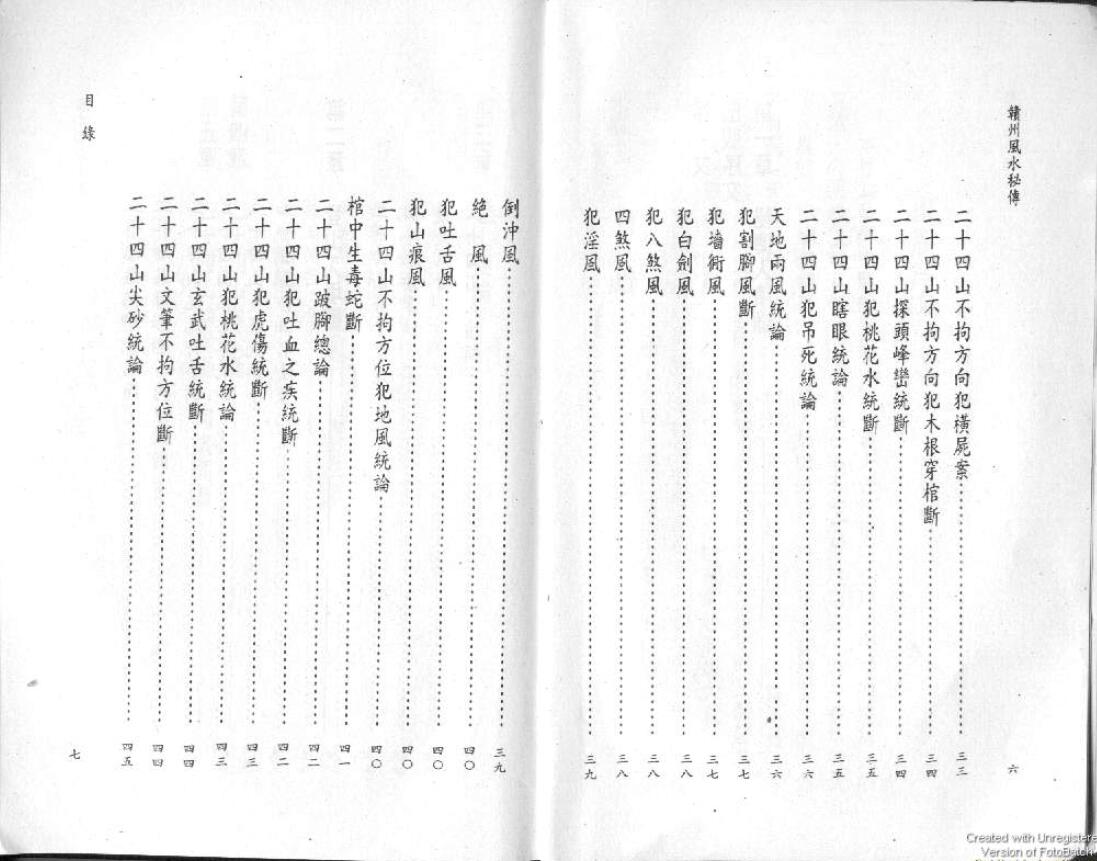 贛州風水秘傳
六
二十四山不拘方向犯橫屍案 三三
二十四山不拘方向犯木根穿棺斷 三四
二十四山探頭峰巒統斷 三四
二十四山犯桃花水統斷 三五
二十四山瞎眼統論 三五
二十四山犯吊死統論 三六
天地兩風統論 三六
犯割腳風斷 三七
犯墻衕風 三七
犯白劍風 三八
犯八煞風 三八
四煞風 三八
犯淫風 三九
倒沖風 三九
絕風 四〇
犯吐舌風 四〇
犯山痕風 四〇
二十四山不拘方位犯地風統論 四〇
棺中生毒蛇斷 四一
二十四山跛腳總論 四二
二十四山犯吐血之疾統斷 四二
二十四山犯虎傷統斷 四三
二十四山犯桃花水統論 四三
二十四山玄武吐舌統斷 四四
二十四山文筆不拘方位斷 四四
二十四山尖砂統論 四五
目錄
七
Created with Unregistere
Version of FotoBatch